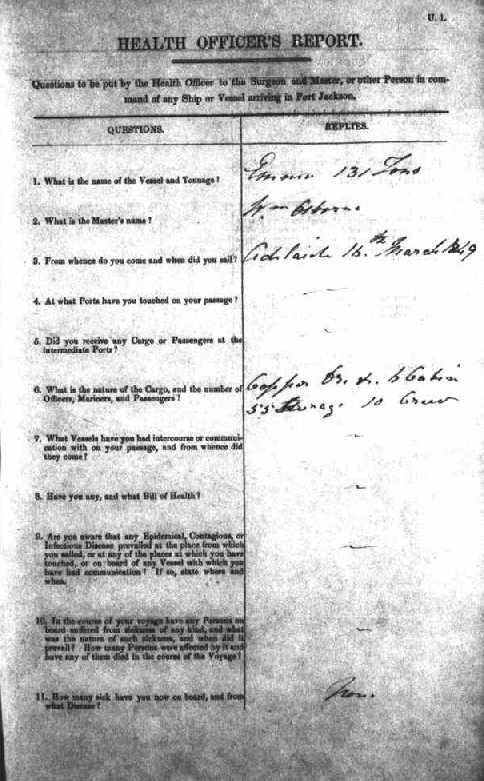 U. 1.
HEALTH OFFICER'S REPORT.
Questions to be put by the Health Officer to the Surgeon and Master, or other Person in com-
mand of any Ship or Vessel arriving in Port Jackson.
QUESTIONS.
REPLIES.
1. What is the name of the Vessel and Tonnage?
Emma 131 Tons
2. What is the Master's name?
Wm Osborne
3. From whence do you come and when did you sail?
Adelaide 16th March 1849
4. At what Ports have you touched on your passage?
5. Did you receive any Cargo or Passengers at the
intermediate Ports?
6. What is the nature of the Cargo, and the number of
Officers, Mariners, and Passengers?
Copper Ore &c. 6 Cabin
55 Steerage 10 Crew
7. What Vessels have you had intercourse or communi-
cation with on your passage, and from whence did
they come?
8. Have you any, and what Bill of Health?
9. Are you aware that any Epidemical, Contagious, or
Infectious Disease prevailed at the place from which
you sailed, or at any of the places at which you have
touched, or on board of any Vessel with which you
have had communication? If so, state where and
when.
10. In the course of your voyage have any Persons on
board suffered from sickness of any kind, and what
was the nature of such sickness, and when did it
prevail? How many Persons were affected by it and
have any of them died in the course of the Voyage?
11. How many sick have you now on board, and from
what Disease?
None